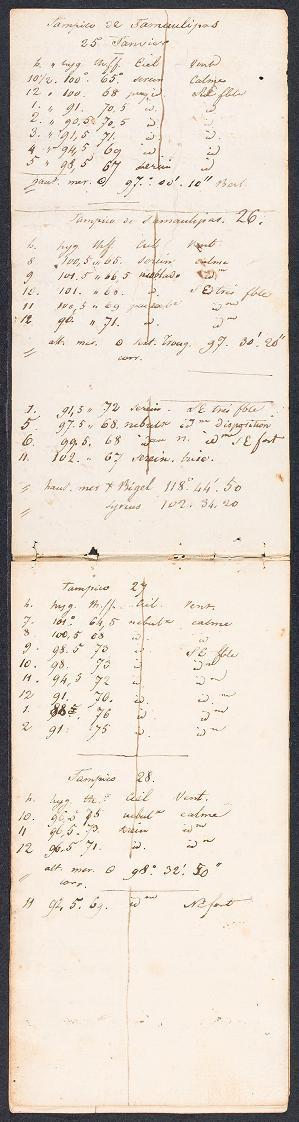 Tampico de Tamaulipas
25 Janvier
h. " hyg th.ff. Ciel Vent
10½. 100° 65° serein calme
12 " 100. 68 SE fble
1. " 91. 70,5 id id
2. " 90,5 70,5 id id
3. " 91,5 71. id id
4. " 94,5 69 id id
5 " 98,5 67 serein id
haut. mer. ʘ 97.° 00'. 10"
Tampico de Tamaulipas. 26.
h. hyg th.ff. Ciel Vent.
8 100,5 " 65. serein calme
9 101.5 " 66,5 id m
10. 101. " 68. id. SE très fble
11 100,5 " 69 id m
12 96. " 71. id. id m
" alt. mer. ʘ 97. 30'. 20"
corr.
1. 91,5 " 72 serein. SE très fble
5 97.5 " 68. nebul. id m disposition
6. 99.5. 68 n. id m SE fort
11. 102. " 67 serein. brise.
" haut. mer * Rigel 118° 44'. 50
" Syrius 102. 34. 20
Tampico 27
h. hyg. th.ff. Ciel. Vent.
7. 101° 64,5 nebul. calme
8 100,5 68 id id
9. 98.5 73 id. SE fble
10. 98. 73 id. id m
11. 94,5 72 id. id m
12 91. 76. id. id m
1. 76 id. id m
2 91. 75 id. id m
Tampico 28.
h. hyg. th. Ciel Vent.
10. 75 nebul. calme
11 96,5. 73. serein id m
12 96.5 71. id. id m
" alt. mer. ʘ 98°. 32'. 50"
corr.
11 92,5. 69. id m NE fort